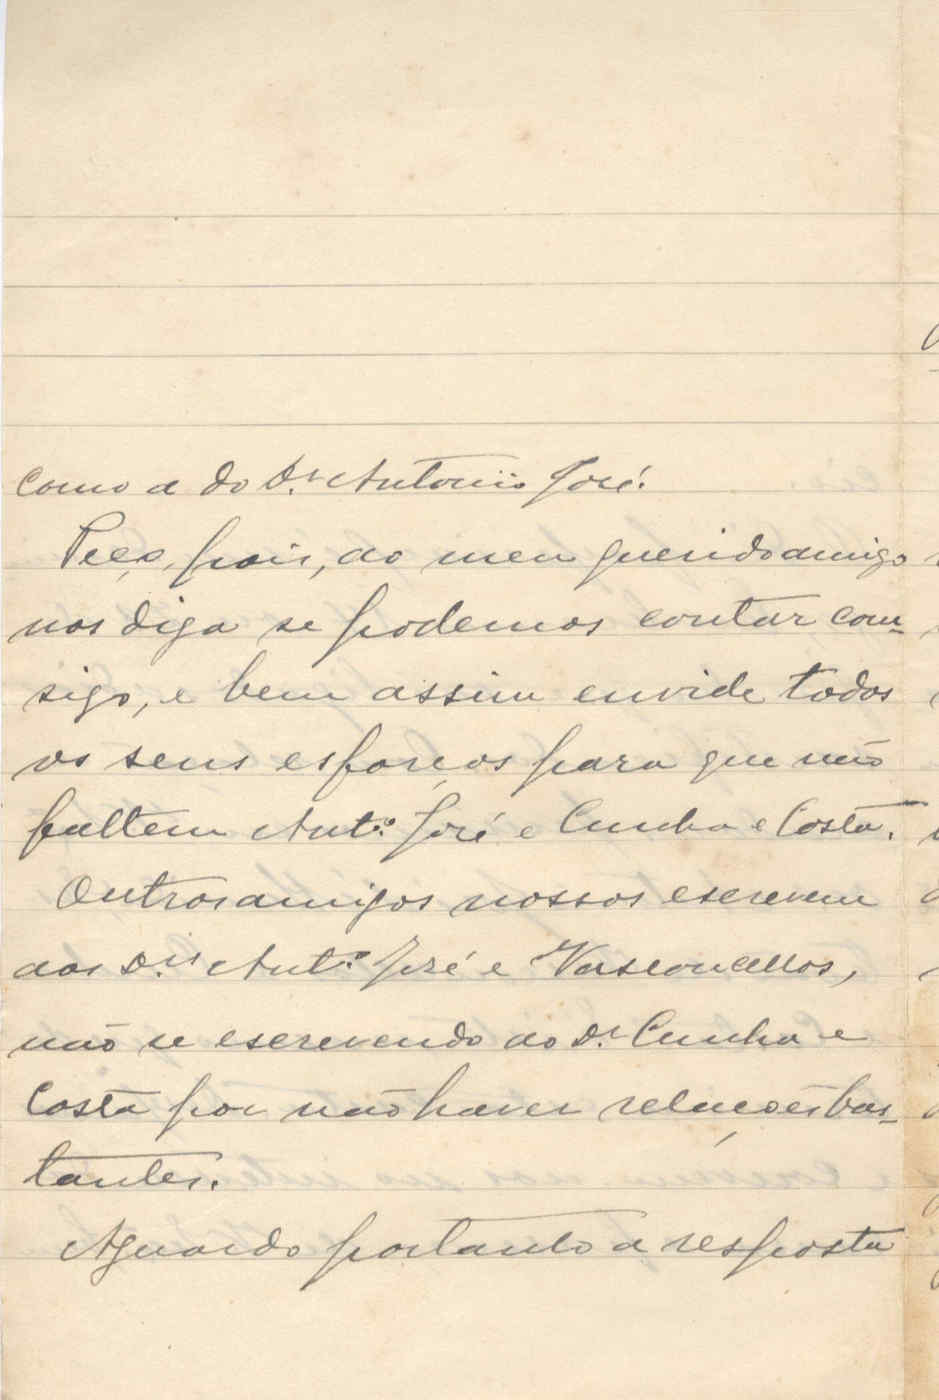 como a do Dr. Antonio José.
Peço, pois, ao meu querido amigo
nos diga se podemos contar com-
sigo, e bem assim envide todos
os seus esforços para que não
faltem Antº. José e Cunha e Costa.
Outros amigos nossos escrevem
aos Drs. Antº. José e Vasconcellos,
não se escrevendo ao Dr. Cunha e
Costa por não haver relações bas-
tantes.
Aguardo portanto a resposta